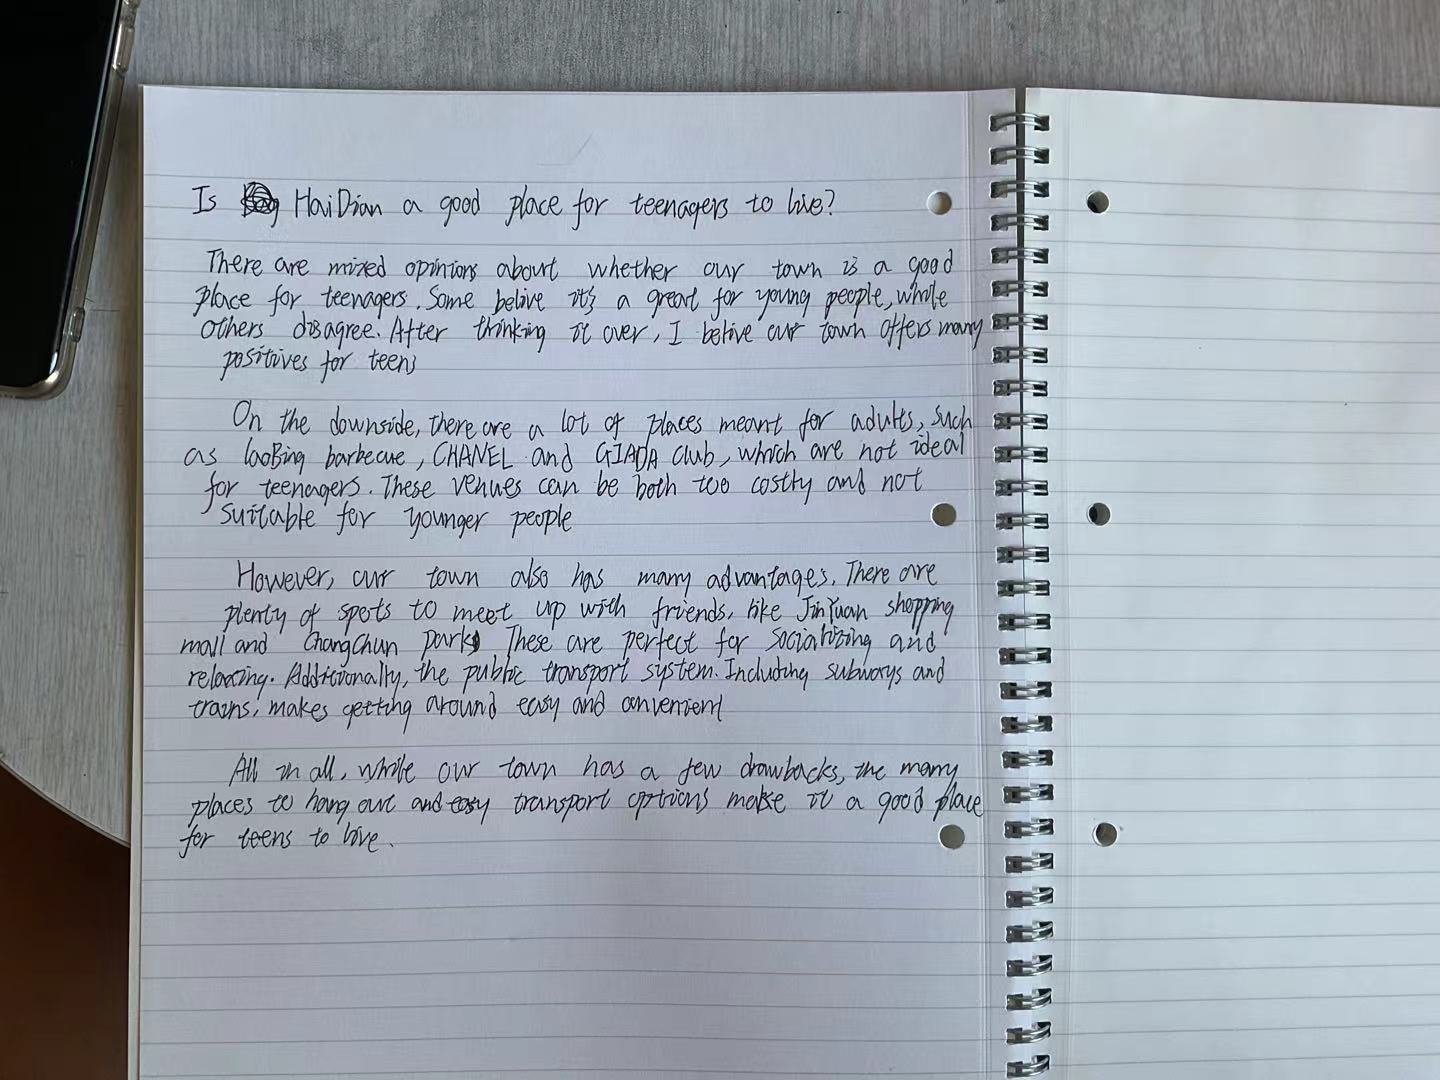 Is HaiDian a good place for teenagers to live?
There are mixed opinions about whether our town is a good
place for teenagers. Some belive it's a great for young people, while
others disagree. After thinking it over, I belive our town offers many
positives for teens
On the downside, there are a lot of places meant for adults, such
as laoBing barbecue, CHANEL and GIADA club, which are not ideal
for teenagers. These venues can be both too costly and not
suitable for younger people
However, our town also has many advantages. There are
plenty of spots to meet up with friends, like JinYuan shopping
mall and ChangChun park. These are perfect for socializing and
relaxing. Additionally, the public transport system. Including subways and
trains, makes getting around easy and convenient
All in all, while our town has a few drawbacks, the many
places to hang out and easy transport options make it a good place
for teens to live.